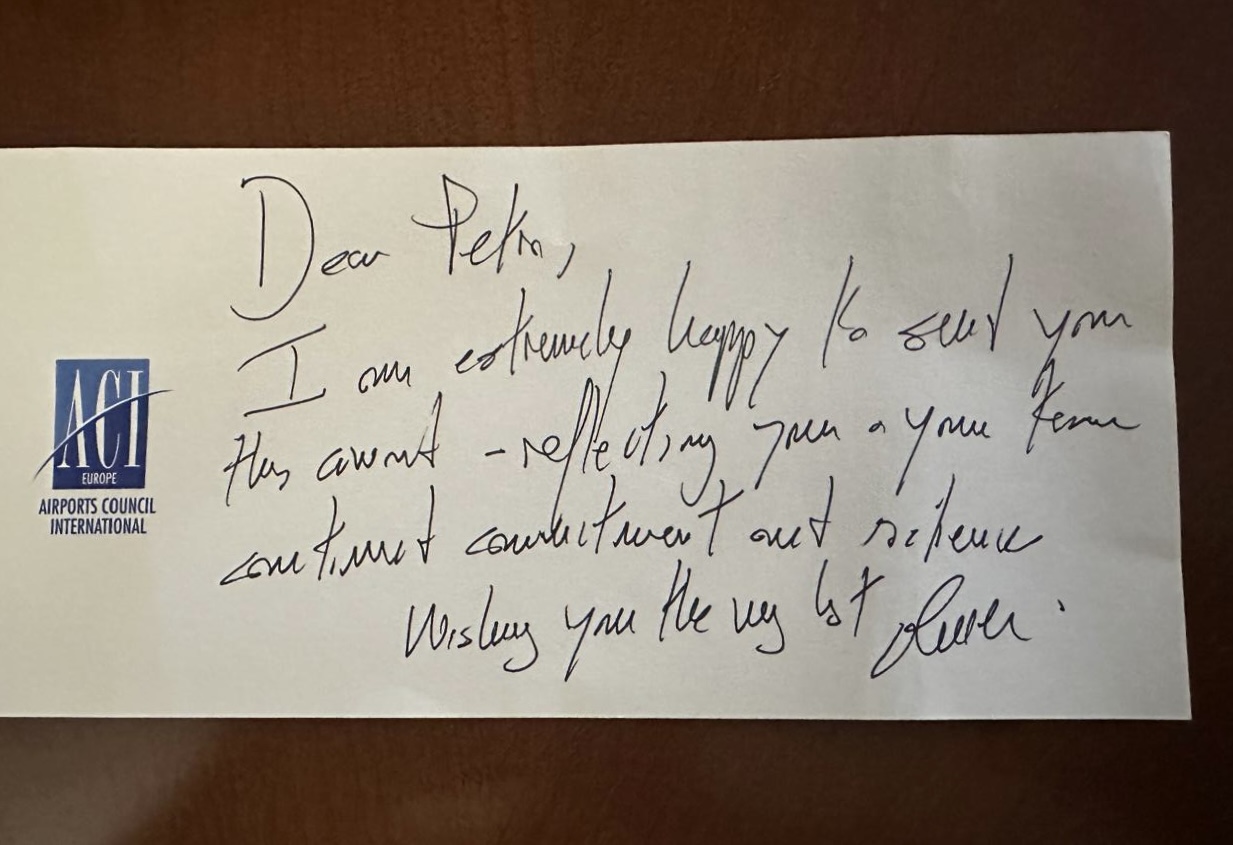 ACI
EUROPE
AIRPORTS COUNCIL
INTERNATIONAL
Dear
I am extremely happy to send you
this award - reflecting your & your team
continued commitment and
Wishing you the very best